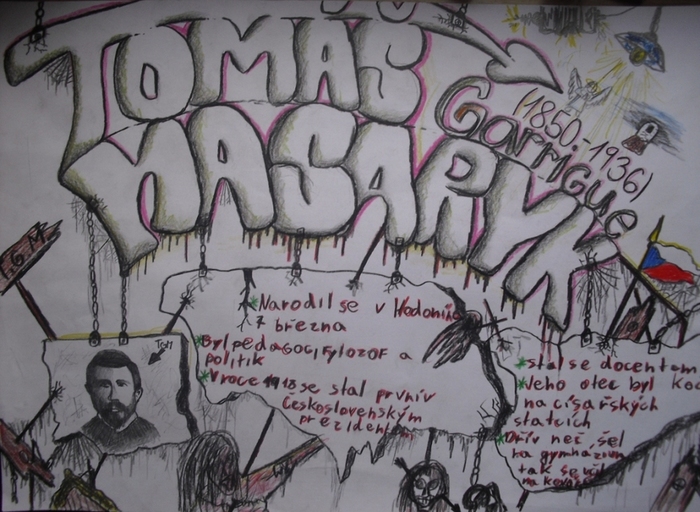 TOMAS
MASARYK
Garrigue
(1850-1936)
T.G.M.
TGM
*Narodil se v Hodoníně
7 března
*Byl pedagog, fylozof a
politik
*V roce 1918 se stal prvnív
Československým
prezidentem
*stal se docentem
*Jeho otec byl
na císařských
statcích
*Dřív než šel
na gymnazium
tak se učil
na kováře